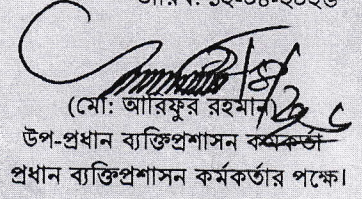 (মো: আরিফুর রহমান)
উপ-প্রধান ব্যক্তিপ্রশাসন কর্মকর্তা
প্রধান ব্যক্তিপ্রশাসন কর্মকর্তার পক্ষে।